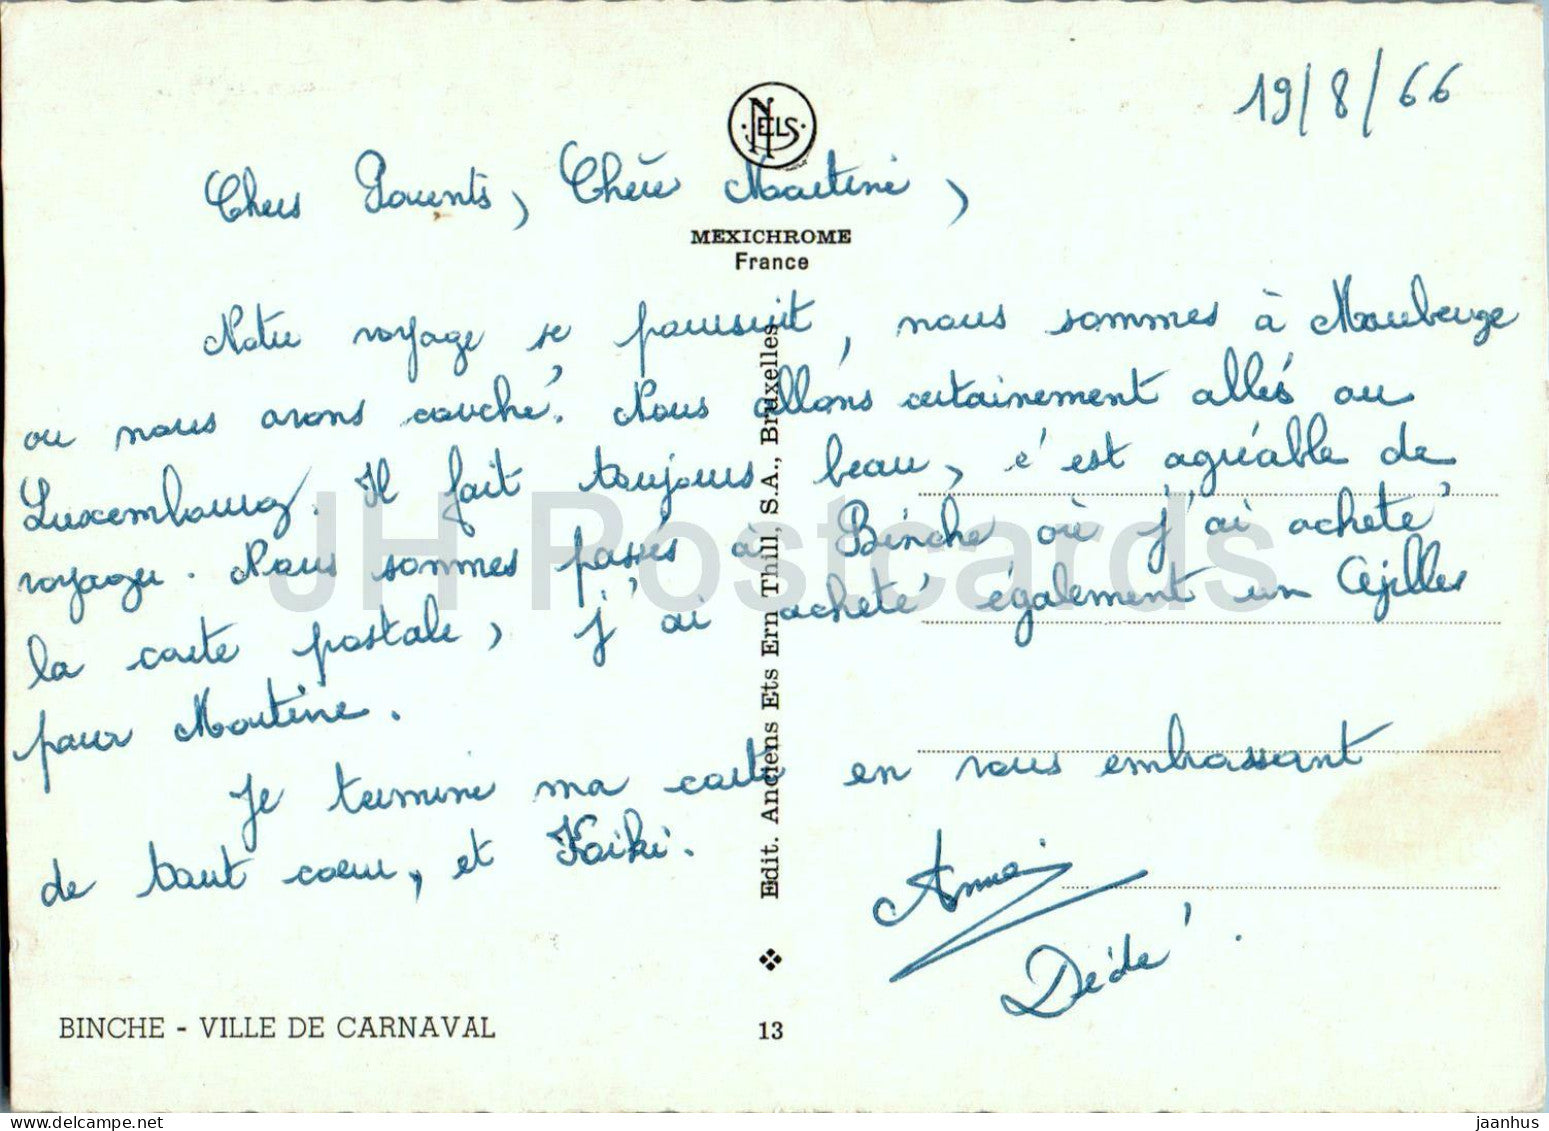 19/8/66
NELS
Chers Parents, Chère Martine,
MEXICHROME
France
Notre voyage se poursuit, nous sommes à Maubeuge
ou nous avons couché. Nous allons certainement allés au
Luxembourg. Il fait toujours beau, c'est agréable de
voyager. Nous sommes passés à Binche où j'ai acheté
la carte postale, j'ai acheté également un Gilles
pour Martine.
Je termine ma carte en vous embrassant
de tout coeur, et Kiki.
Anna
Dédé.
Edit. Anciens Ets Ern Thill, S.A., Bruxelles
BINCHE - VILLE DE CARNAVAL
13
JH Postcards
delcampe.net
jaanhus